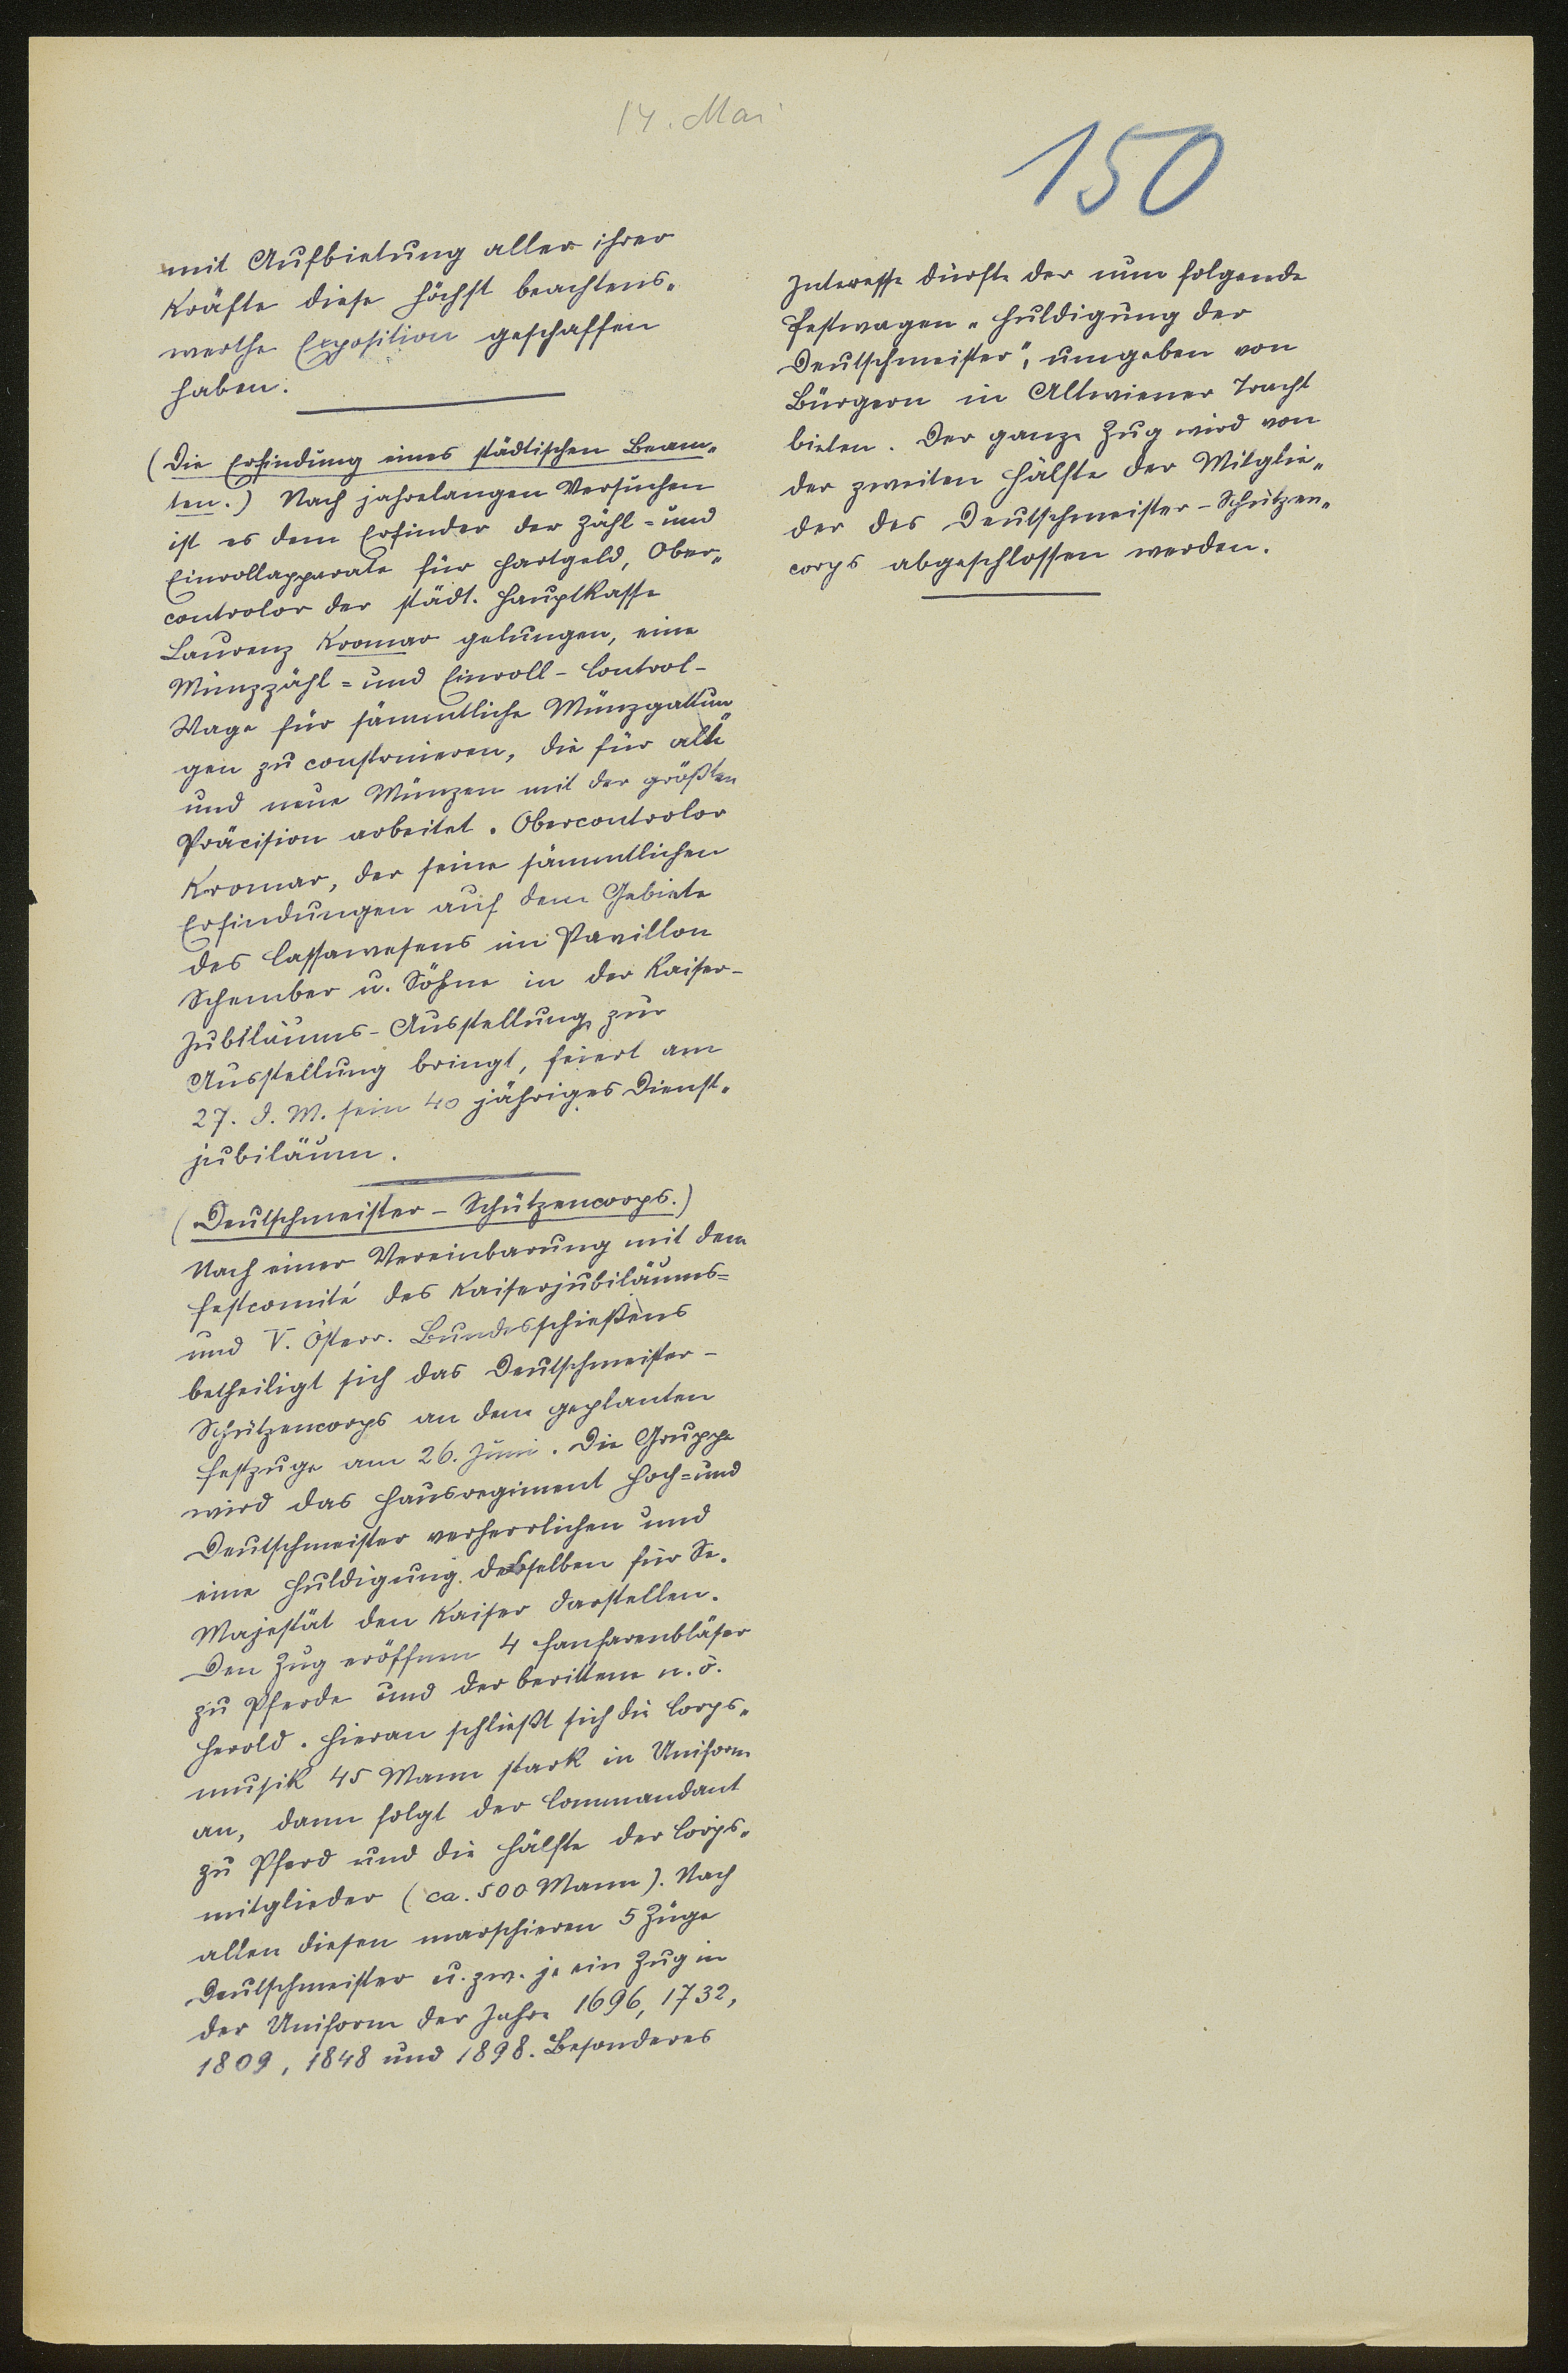 14. Mai
150
mit Aufbietung aller ihrer
Kräfte diese höchst beachtens„
werthe Exposition geschaffen
haben.
(Die Erfindung eines städtischen Beam„
ten.) Nach jahrelangen Versuchen
ist es dem Erfinder der Zähl= und
Einrollapparate für Hartgeld, Ober„
controlor der städt. Hauptkasse
Laurenz Kromar gelungen, eine
Münzzähl= und Einroll-Control-
Wage für sämmtliche Münzgattun„
gen zu construieren, die für alte
und neue Münzen mit der größten
Präcision arbeitet. Obercontrolor
Kromar, der seine sämmtlichen
Erfindungen auf dem Gebiete
des Cassawesens im Pavillon
Schember u. Söhne in der Kaiser-
Jubiläums-Ausstellung zur
Ausstellung bringt, feiert am
27. d. M. sein 40 jähriges Dienst„
jubiläum.
(Deutschmeister-Schützencorps.)
Nach einer Vereinbarung mit dem
Festcomité des Kaiserjubiläums=
und V. Österr. Bundesschießens
betheiligt sich das Deutschmeister-
Schützencorps an dem geplanten
Festzuge am 26. Juni. Die Gruppe
wird das Hausregiment Hoch= und
Deutschmeister verherrlichen und
eine Huldigung desselben für Se.
Majestät den Kaiser darstellen.
Den Zug eröffnen 4 Fanfarenbläser
zu Pferde und der berittene n. ö.
Herold. Hieran schließt sich die Corps„
musik 45 Mann stark in Uniform
an, dann folgt der Commandant
zu Pferd und die Hälfte der Corps„
mitglieder (ca. 500 Mann). Nach
allen diesen marschieren 5 Züge
Deutschmeister u. zw. je ein Zug in
der Uniform der Jahre 1696, 1732,
1809, 1848 und 1898. Besonderes
Interesse dürfte der nun folgende
Festwagen „Huldigung der
Deutschmeister", umgeben von
Bürgern in Altwiener Tracht
bieten. Der ganze Zug wird von
der zweiten Hälfte der Mitglie„
der des Deutschmeister-Schützen„
corps abgeschlossen werden.